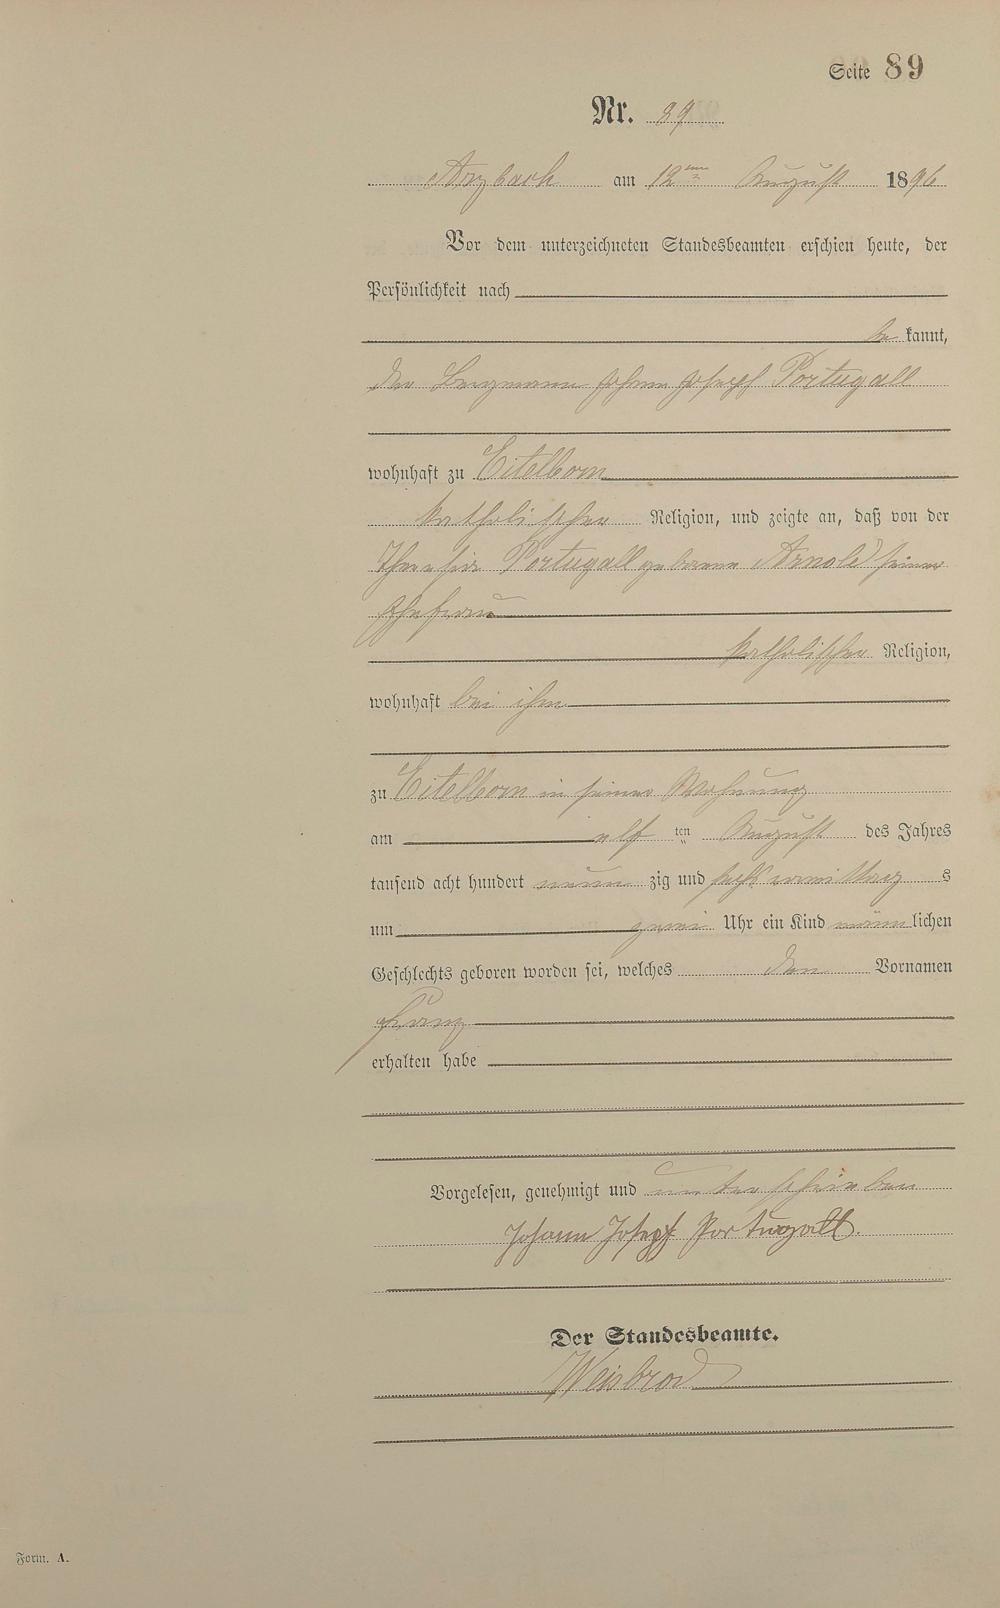 Seite 89
Nr. 89
Arzbach am 12ten August 1896
Vor dem unterzeichneten Standesbeamten erschien heute, der
Persönlichkeit nach
be kannt,
der Bergmann Johann Joseph Portugall
wohnhaft zu Eitelborn
katholischer Religion, und zeigte an, daß von der
Theresia Portugall geborene Arnold seiner
Ehefrau
katholischer Religion,
wohnhaft bei ihm
zu Eitelborn in seiner Wohnung
am elf ten August des Jahres
tausend acht hundert neun zig und sechs vormittag s
um zwei Uhr ein Kind männ lichen
Geschlechts geboren worden sei, welches den Vornamen
Franz
erhalten habe
Vorgelesen, genehmigt und unterschrieben
Johann Josepf Portugall.
Der Standesbeamte.
Weisbrod
Form. A.